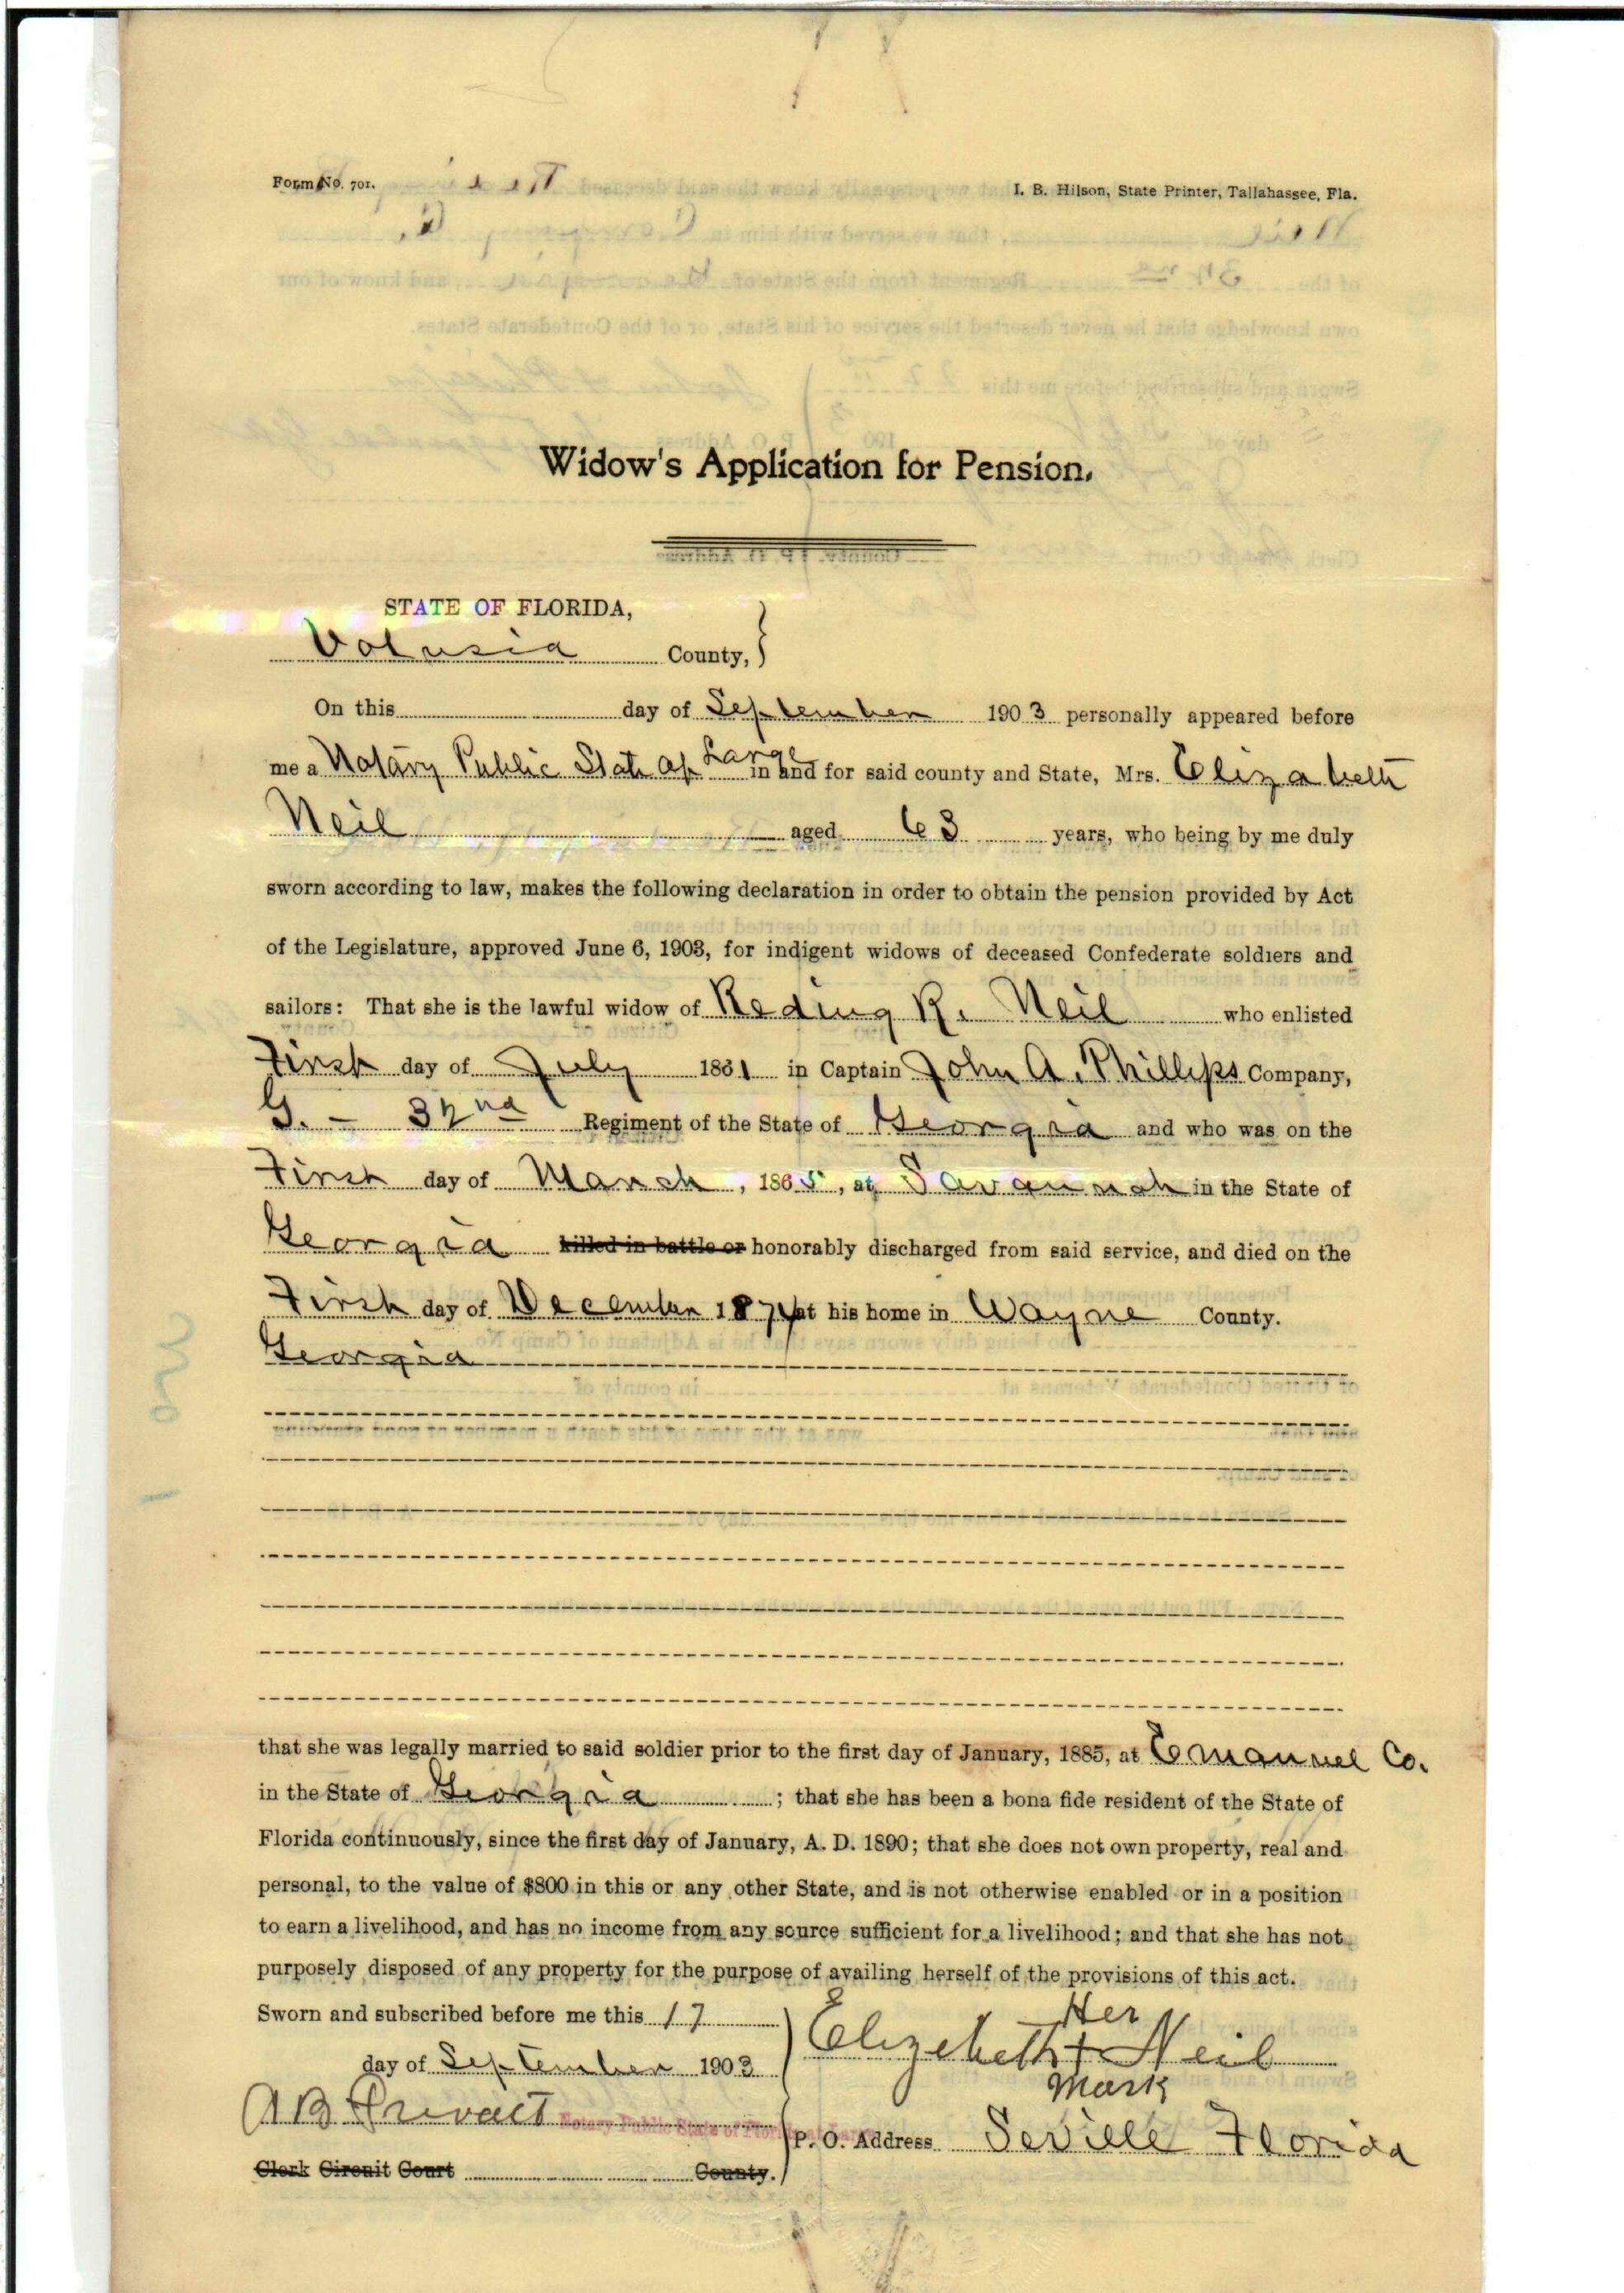 Form No. 701.
I. B. Hilson, State Printer, Tallahassee, Fla.
Widow's Application for Pension.
STATE OF FLORIDA,
Volusia County,
On this day of September 1903 personally appeared before
me a Notary Public State at Large in and for said county and State, Mrs. Elizabeth
Neil aged 63 years, who being by me duly
sworn according to law, makes the following declaration in order to obtain the pension provided by Act
of the Legislature, approved June 6, 1903, for indigent widows of deceased Confederate soldiers and
sailors: That she is the lawful widow of Reding R. Neil who enlisted
First day of July 1861 in Captain John A. Phillips Company,
G. - 32nd Regiment of the State of Georgia and who was on the
First day of March, 1865, at Savannah in the State of
Georgia killed in battle or honorably discharged from said service, and died on the
First day of December at his home in Wayne County.
Georgia
that she was legally married to said soldier prior to the first day of January, 1885, at Emanuel Co.
in the State of Georgia; that she has been a bona fide resident of the State of
Florida continuously, since the first day of January, A. D. 1890; that she does not own property, real and
personal, to the value of $800 in this or any other State, and is not otherwise enabled or in a position
to earn a livelihood, and has no income from any source sufficient for a livelihood; and that she has not
purposely disposed of any property for the purpose of availing herself of the provisions of this act.
Sworn and subscribed before me this 17
day of September 1903
Her
Elizebeth + Neil
Mark
A B Prevatt Notary Public State of Florida at Large
P. O. Address Seville Florida
Clerk Circuit Court County.